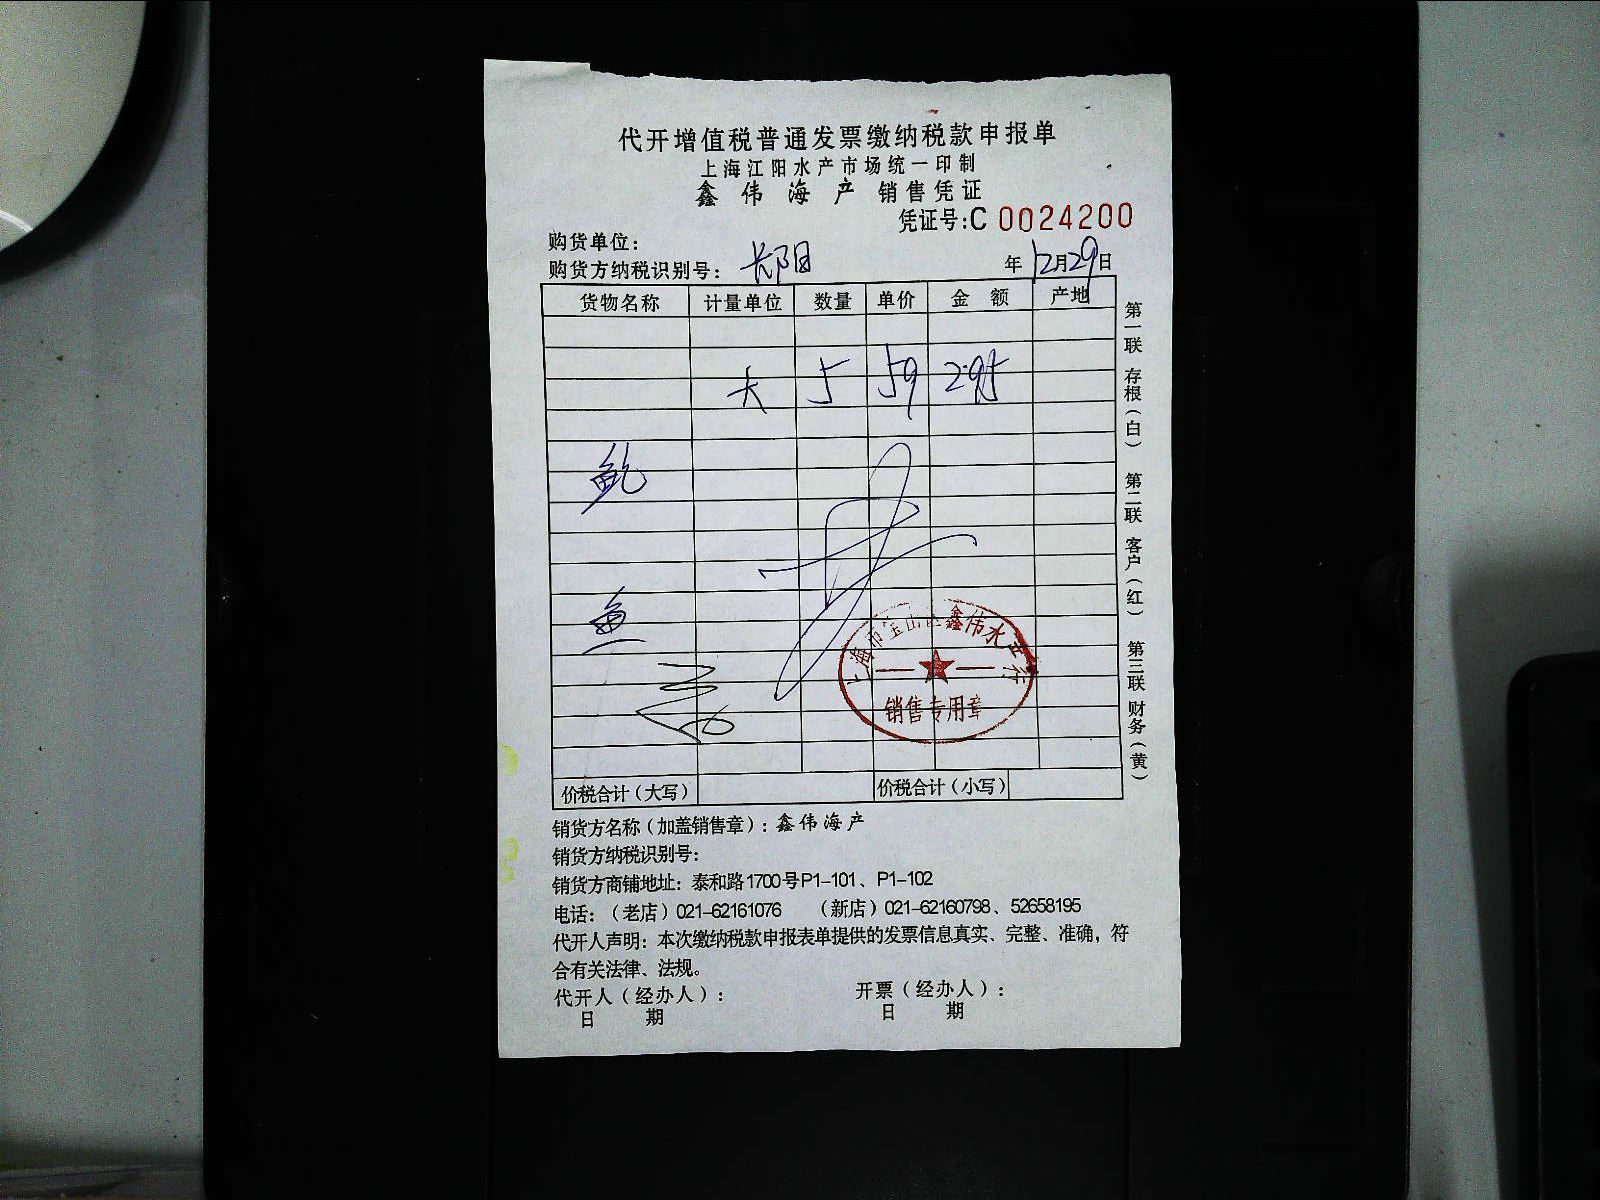 代开增值税普通发票缴纳税款申报单
上海江阳水产市场统一印制
鑫伟海产 销售凭证
凭证号:C 0024200
购货单位：
购货方纳税识别号： 长阳 年12月29日
货物名称 计量单位 数量 单价 金额 产地
大 5 59 295
鲍
鱼
上海市宝山区鑫伟水产行
销售专用章
价税合计（大写） 价税合计（小写）
第一联 存根（白） 第二联 客户（红） 第三联 财务（黄）
销货方名称（加盖销售章）：鑫伟海产
销货方纳税识别号：
销货方商铺地址：泰和路1700号P1-101、P1-102
电话：（老店）021-62161076 （新店）021-62160798、52658195
代开人声明：本次缴纳税款申报表单提供的发票信息真实、完整、准确，符
合有关法律、法规。
代开人（经办人）： 开票（经办人）：
日 期 日 期